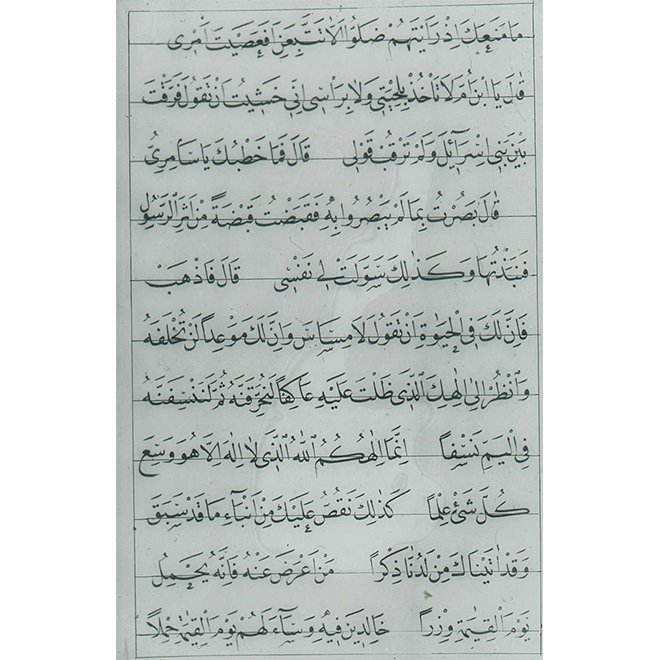 ما منعك اذ رايتهم ضلوا الا تتبعن افعصيت امرى
قال يا ابن ام لا تاخذ بلحيتي ولا براسى انى خشيت ان تقول فرقت
بين بنى اسرائل ولم ترقب قولى قال فما خطبك يا سامرى
قال بصرت بما لم يبصروا به فقبضت قبضة من اثر الرسول
فنبذتها وكذلك سولت لى نفسى قال فاذهب
فان لك فى الحيوة ان تقول لا مساس وان لك موعدا لن تخلفه
وانظر الى الهك الذى ظلت عليه عاكفا لنحرقنه ثم لننسفنه
فى اليم نسفا انما الهكم الله الذى لا اله الا هو وسع
كل شئ علما كذلك نقص عليك من انباء ما قد سبق
وقد اتيناك من لدنا ذكرا من اعرض عنه فانه يحمل
يوم القيمة وزرا خالدين فيه وساء لهم يوم القيمة حملا